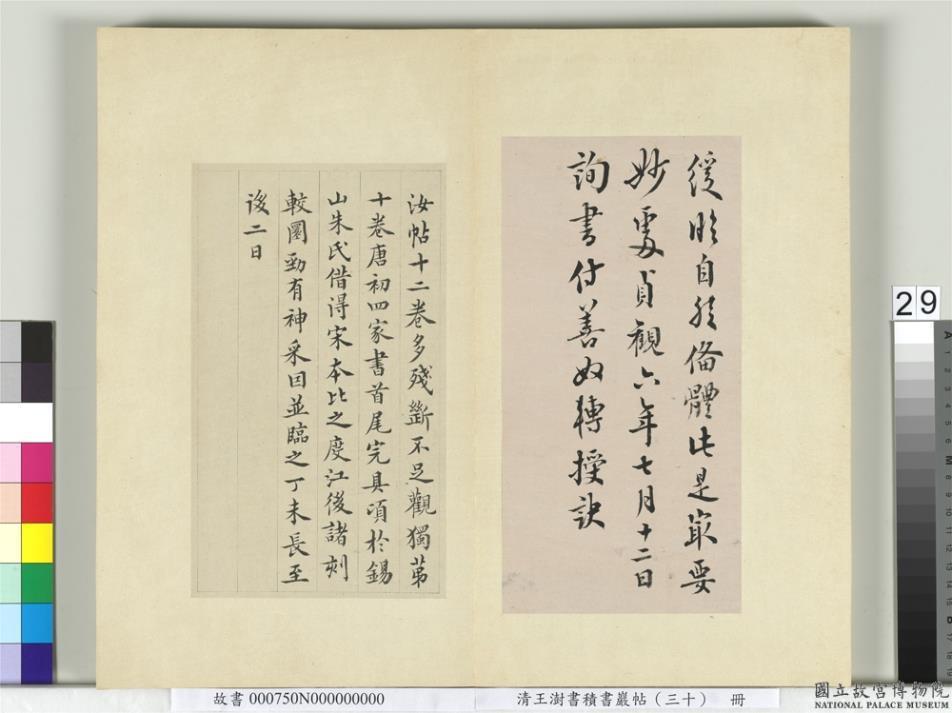 緩臨自然備體此是最要
妙處貞觀六年七月十二日
詢書付善奴轉授訣
汝帖十二卷多殘斷不足觀獨苐
十卷唐初四家書首尾完具頃於錫
山朱氏借得宋本比之度江後諸刻
較圜勁有神采因並臨之丁未長至
後二日
29
故書 000750N000000000
清王澍書積書巖帖（三十） 冊
國立故宮博物院
NATIONAL PALACE MUSEUM